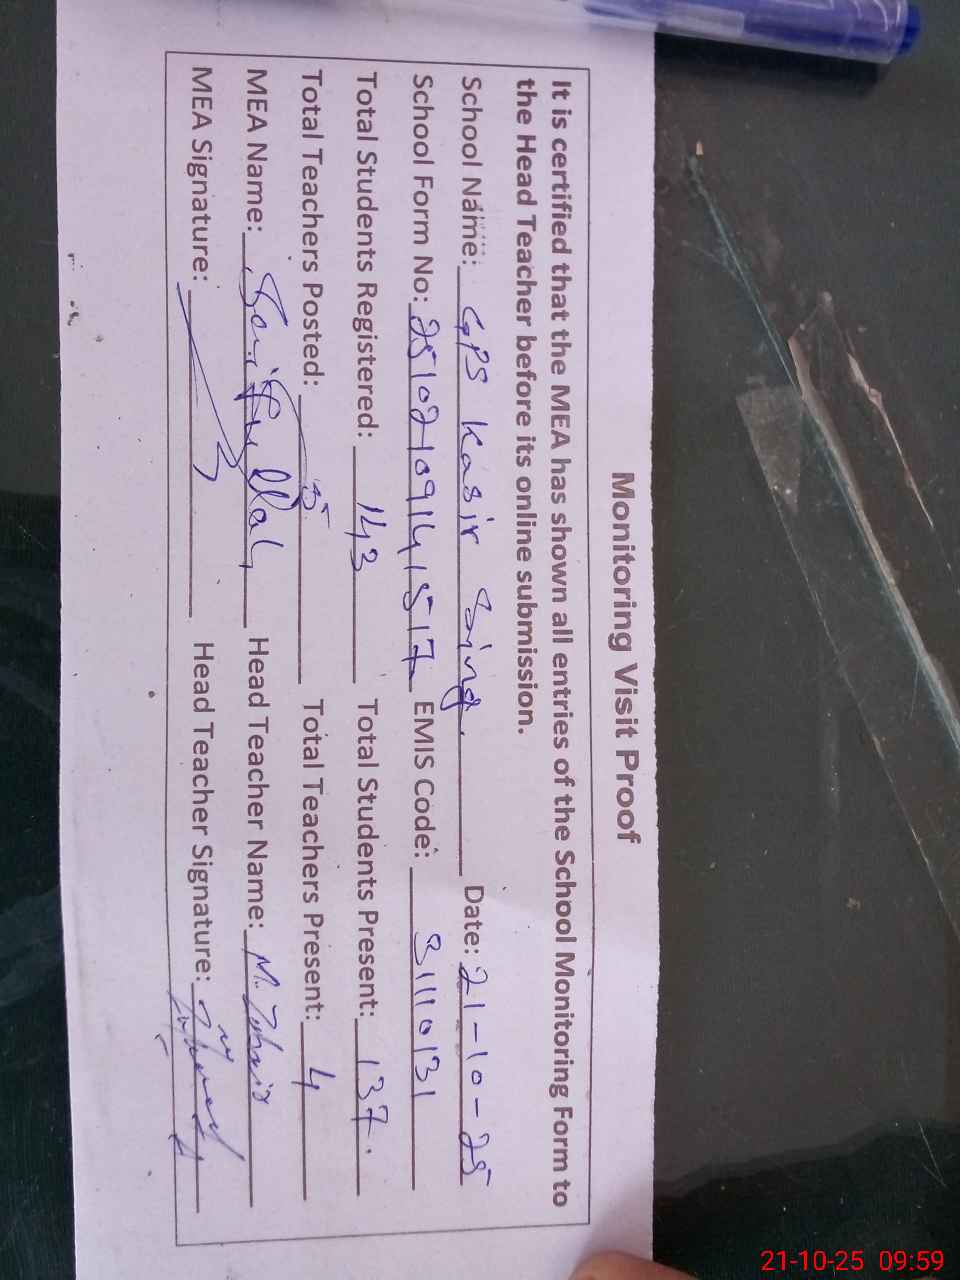 Monitoring Visit Proof
It is certified that the MEA has shown all entries of the School Monitoring Form to
the Head Teacher before its online submission.
School Name: GPS Kasir Sing. Date: 21-10-25
School Form No: 25102109141517 EMIS Code: 31110131
Total Students Registered: 143 Total Students Present: 137.
Total Teachers Posted: 5 Total Teachers Present: 4
MEA Name: Head Teacher Name: M.
MEA Signature: Head Teacher Signature:
21-10-25 09:59